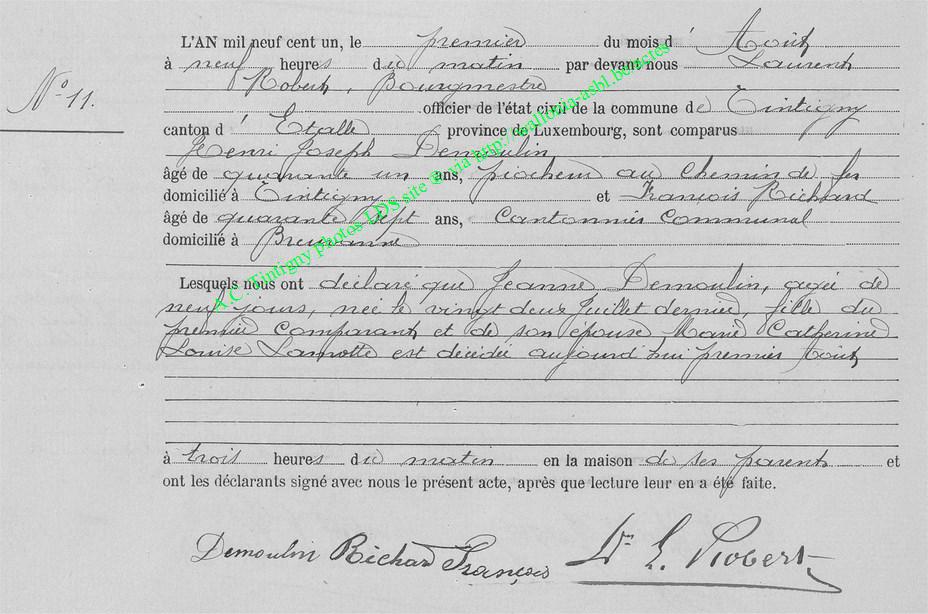 L'AN mil neuf cent un, le premier du mois d' Août
à neuf heures du matin par devant nous Laurent
Robert, Bourgmestre
officier de l'état civil de la commune de Tintigny
canton d' Etalle province de Luxembourg, sont comparus
Henri Joseph Demoulin
âgé de quarante un ans, piocheur au Chemin de fer
domicilié à Tintigny et François Richard
âgé de quarante sept ans, Cantonnier Communal
domicilié à Breuvanne
Lesquels nous ont déclaré que Jeanne Demoulin, agée de
neuf jours, née le vingt deux Juillet dernier, fille du
premier comparant et de son épouse Marie Catherine
Louise Lamotte est décédée aujourd'hui premier Août
à trois heures du matin en la maison de ses parents et
ont les déclarants signé avec nous le présent acte, après que lecture leur en a été faite.
Demoulin Richard François Dr L. Robert
N° 11.
A.C. Tintigny photos LDS site @ via http://wallonia-asbl.be/actes